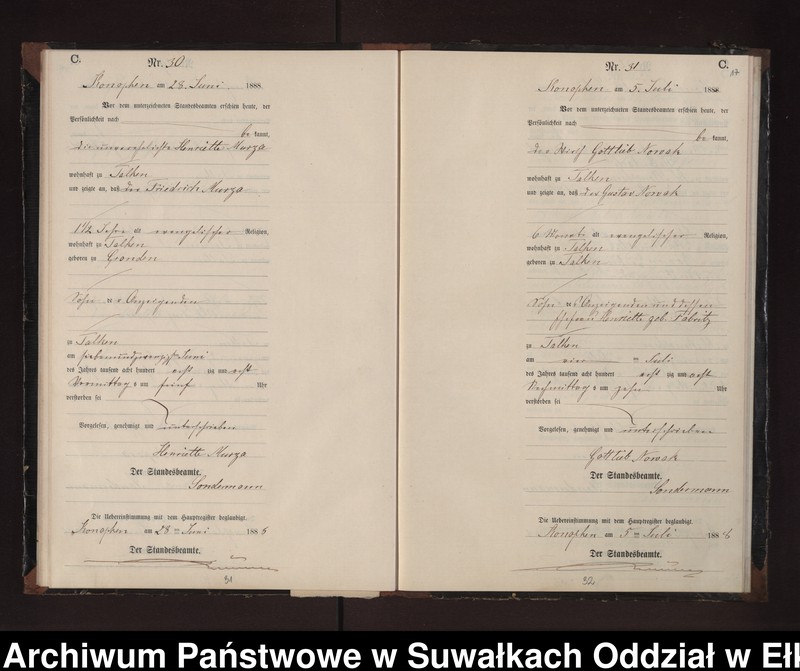 C.
Nr. 30
am 28. Juni 1888.
Vor dem unterzeichneten Standesbeamten erschien heute, der
Persönlichkeit nach
be kannt,
die unverehelichte Henriette Murza
wohnhaft zu Talken
und zeigte an, daß der Friedrich Murza
1 1/2 Jahre alt evangelischer Religion,
wohnhaft zu Talken
geboren zu
Sohn der Anzeigenden
zu Talken
am siebenundzwanzigsten Juni
des Jahres tausend acht hundert acht zig und acht
Vormittag s um fünf Uhr
verstorben sei
Vorgelesen, genehmigt und unterschrieben
Henriette Murza
Der Standesbeamte.
Sondermann
Die Uebereinstimmung mit dem Hauptregister beglaubigt.
am 28 ten Juni 188
Der Standesbeamte.
31
Nr. 31
C.
17
am 5. Juli 1888.
Vor dem unterzeichneten Standesbeamten erschien heute, der
Persönlichkeit nach
be kannt,
der Gottlieb Nowak
wohnhaft zu Talken
und zeigte an, daß der Gustav Nowak
6 Monate alt evangelischer Religion,
wohnhaft zu Talken
geboren zu Talken
Sohn des Anzeigenden und dessen
Ehefrau Henriette geb.
zu Talken
am vier ten Juli
des Jahres tausend acht hundert acht zig und acht
Nachmittag s um zehn Uhr
verstorben sei
Vorgelesen, genehmigt und unterschrieben
Gottlieb Nowak
Der Standesbeamte.
Sondermann
Die Uebereinstimmung mit dem Hauptregister beglaubigt.
am 5 ten Juli 188
Der Standesbeamte.
32
Archiwum Państwowe w Suwałkach Oddział w Eł